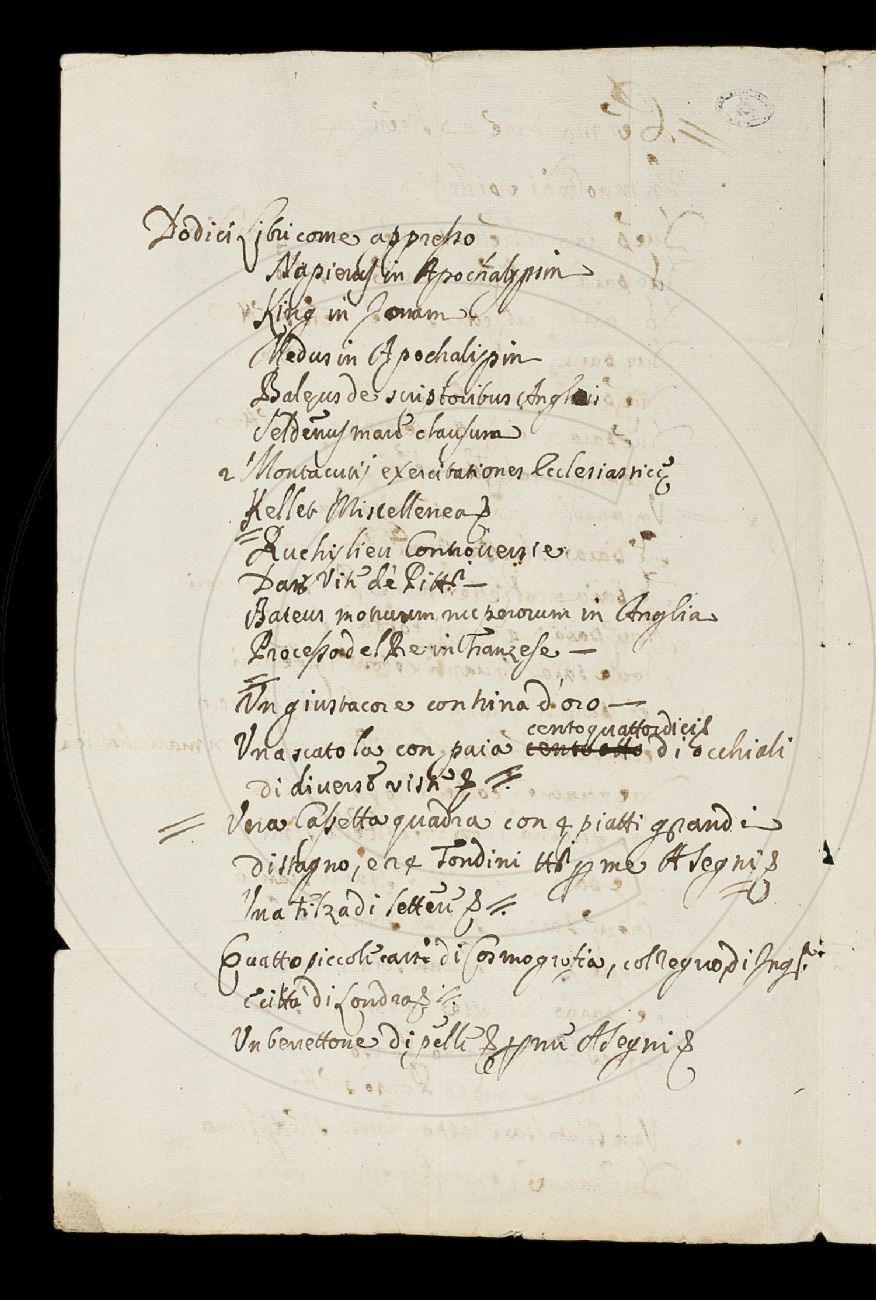 Dodici Libri come appresso
Napierus in Apochalypsin
King in Jonam
Medus in Apochalipsin
Baleus de scriptoribus
Seldenus mare clausum
2 Montacutij exercitationes Ecclesiasticę
Kellet Miscellenea
Ruchilieu Controversie
Vite de Pitti
Bateus motuum nuperorum in Anglia
Processo del Re in Franzese
Un giustacore con trina d'oro
centoquattordici
Una scatola con paia cento otto di occhiali
di diverse viste
Una Cassetta quadra con 4 piatti grandi
di stagno, e 24 Tondini me Asegni
Una filza di lettere
Quatto piccole carte di Cosmografia, col Regno di Ingra
e citta di Londra
Un berrettone di pelle Asegni